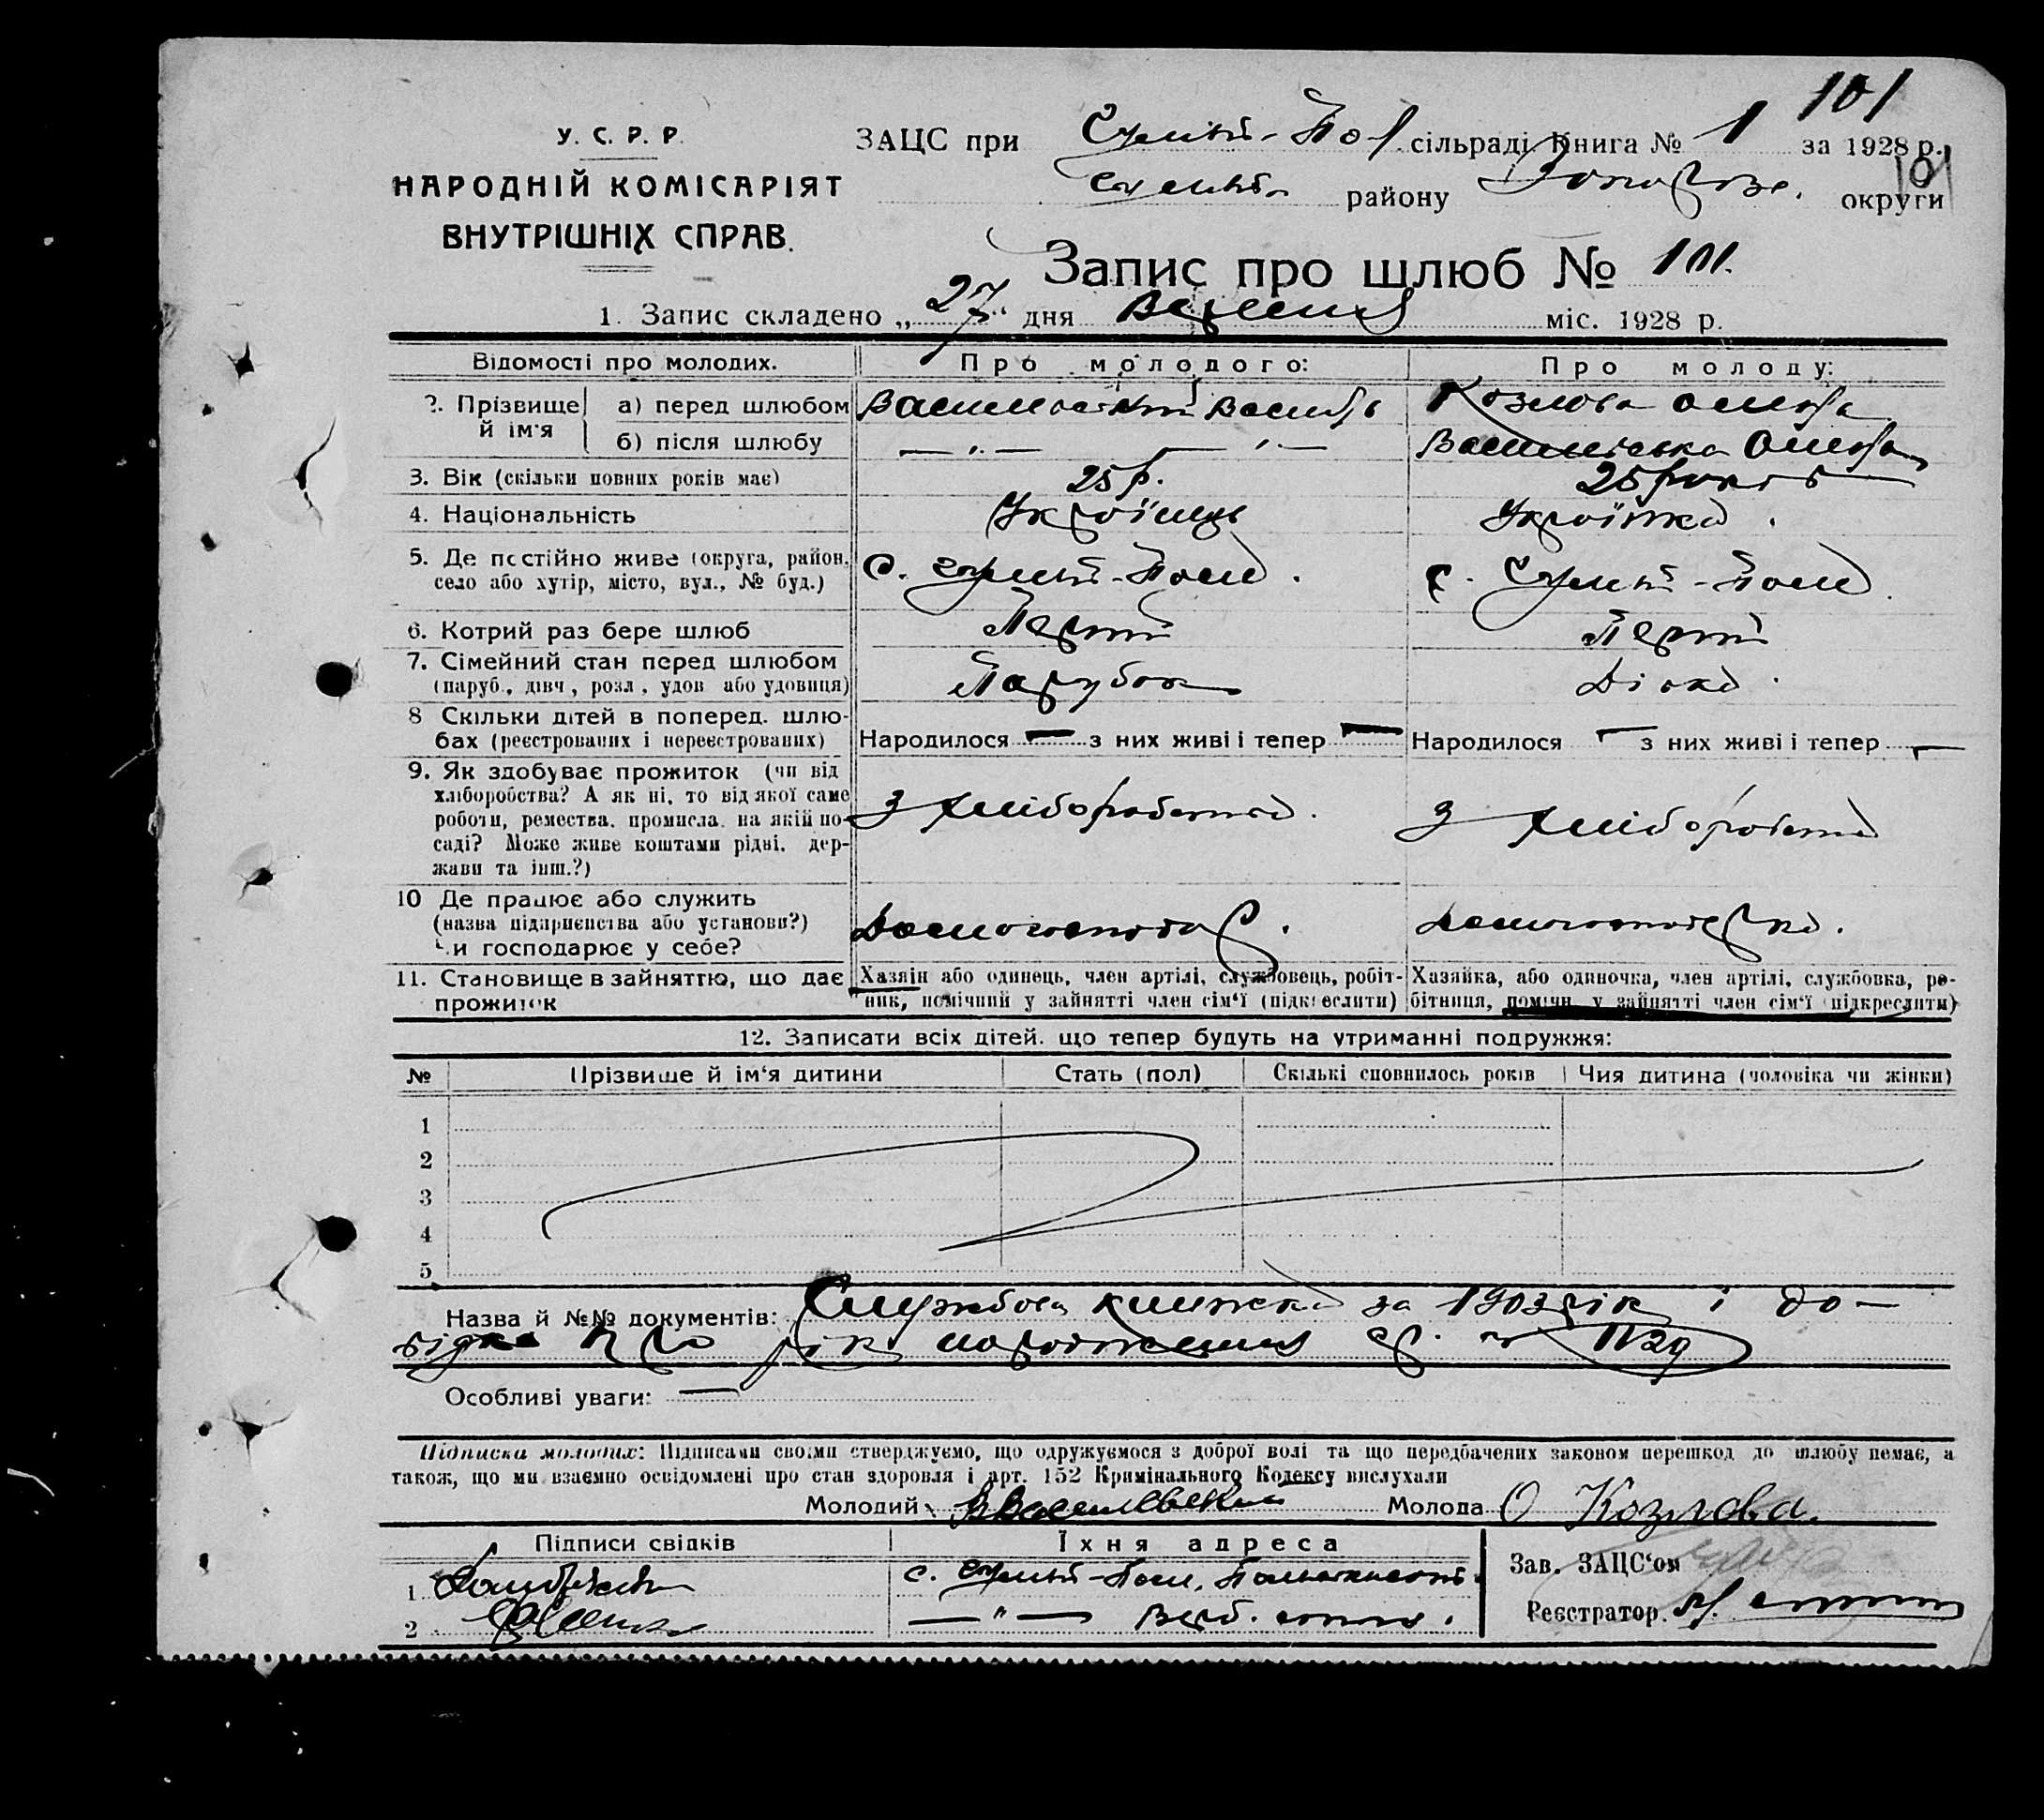 101
У. С. Р. Р.
ЗАЦС при Гуляй-Пол сільраді Книга № 1 за 1928 р.
101
НАРОДНІЙ КОМІСАРІЯТ
району Запоріж. округи
ВНУТРІШНІХ СПРАВ.
Запис про шлюб № 101.
1. Запис складено „27“ дня Вересня міс. 1928 р.
Відомості про молодих. Про молодого: Про молоду:
2. Прізвище й ім'я
а) перед шлюбом Василевський Василь Козлова
б) після шлюбу —„— —„— Василевська
3. Вік (скільки повних років має) 25 р. 25 років
4. Національність Українець Українка.
5. Де постійно живе (округа, район, село або хутір, місто, вул., № буд.) с. Гуляй-Поле. с. Гуляй-Поле.
6. Котрий раз бере шлюб Перший Перший
7. Сімейний стан перед шлюбом (паруб., дівч., розл., удов. або удовиця) Парубок Дівка.
8 Скільки дітей в поперед. шлюбах (реєстрованих і нереєстрованих) Народилося — з них живі і тепер — Народилося — з них живі і тепер —
9. Як здобуває прожиток (чи від хліборобства? А як ні, то від якої саме роботи, ремества, промисла, на якій посаді? Може живе коштами рідні, держави та інш.?) З хліборобства. З хліборобства
10 Де працює або служить (назва підприємства або установи?) Чи господарює у себе? Домогосподар. Домогосподарка.
11. Становище в зайняттю, що дає прожиток
Хазяїн або одинець, член артілі, службовець, робітник, помічний у зайнятті член сім'ї (підкреслити)
Хазяйка, або одиночка, член артілі, службовка, робітниця, помічн. у зайнятті член сім'ї (підкреслити)
12. Записати всіх дітей, що тепер будуть на утриманні подружжя:
№ Прізвище й ім'я дитини Стать (пол) Скількі сповнилось років Чия дитина (чоловіка чи жінки)
1
2
3
4
5
Назва й №№ документів: Службова книжка за 1903 рік і до-
відка про рік народження
Особливі уваги: —
Підписка молодих: Підписами своїми стверджуємо, що одружуємося з доброї волі та що передбачених законом перешкод до шлюбу немає, а
також, що ми взаємно освідомлені про стан здоровля і арт. 152 Кримінального Кодексу вислухали
Молодий В Василевський Молода О Козлова.
Підписи свідків Їхня адреса
Зав. ЗАЦС'ом
1 с. Гуляй-Поле,
2 —„— Верб.
Реєстратор